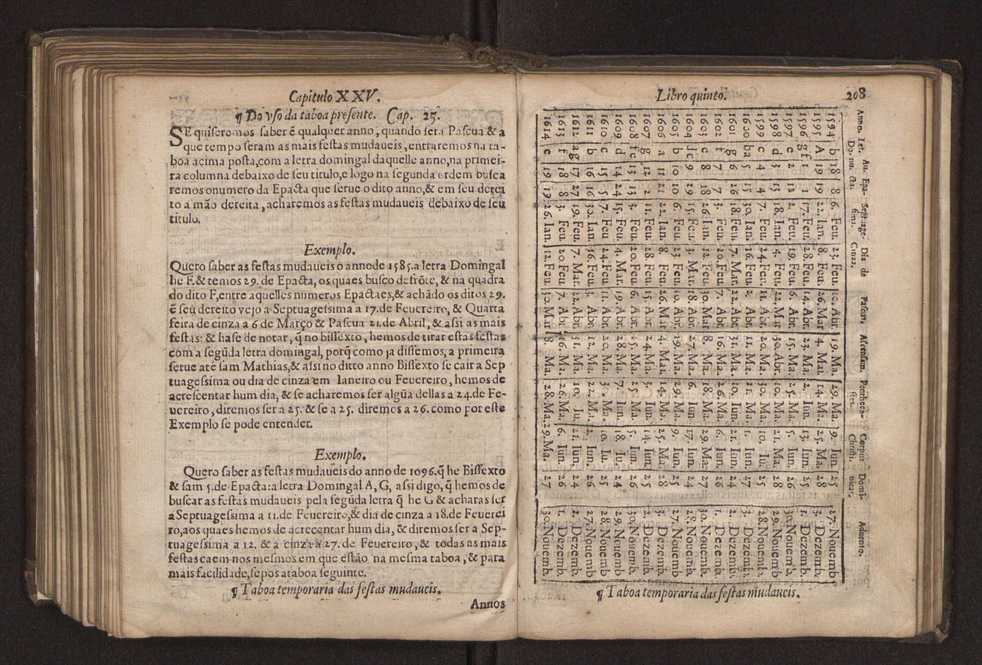 Capitulo XXV.
¶ Do vso da taboa presente. Cap. 25.
SE quiseremos saber ẽ qualquer anno, quando sera Pascua & a
que tempo seram as mais festas mudaueis, entraremos na ta-
boa acima posta, com a letra domingal daquelle anno, na primei-
ra columna debaixo de seu titulo, e logo na segunda ordem busca
remos o numero da Epacta que serue o dito anno, & em seu derei
to a mão dereita, acharemos as festas mudaueis debaixo de seu
titulo.
Exemplo.
Quero saber as festas mudaueis o anno de 1585. a letra Domingal
he F. & temos 29. de Epacta, os quaes busco defrõte, & na quadra
do dito F, entre aquelles numeros Epactaes, & achãdo os ditos 29.
ẽ seu dereito vejo a Septuagesima a 17. de Feuereiro, & Quarta
feira de cinza a 6 de Março & Pascua 21. de Abril, & assi as mais
festas: & hase de notar, q̃ no bissexto, hemos de tirar estas festas
com a segũda letra domingal, porq̃ como ja dissemos, a primeira
serue atè sam Mathias, & assi no ditto anno Bissexto se cair a Sep
tuagessima ou dia de cinza em Ianeiro ou Feuereiro, hemos de
acrescentar hum dia, & se acharemos ser algũa dellas a 24. de Fe-
uereiro, diremos ser a 25. & se a 25. diremos a 26. como por este
Exemplo se pode entender.
Exemplo.
Quero saber as festas mudaueis do anno de 1096. q̃ he Bissexto
& sam 5. de Epacta: a letra Domingal A, G, assi digo, q̃ hemos de
buscar as festas mudaueis pela segũda letra q̃ he G & acharas ser
a Septuagessima a 11. de Feuereiro, & dia de cinza a 18. de Feuerei
ro, aos quaes hemos de acrecentar hum dia, & diremos ser a Sep-
tuagessima a 12. & a cinza a 27. de Feuereiro, & todas as mais
festas caem nos mesmos em que estão na mesma taboa, & para
mais facilidade, se pos a taboa seguinte.
¶ Taboa temporaria das festas mudaueis.
Annos
Libro quinto. 208
Anno. Let. Au. Epa- Septuage- Dia de Pascua. Ascensam. Penthecos- Corpus Domi- Aduento.
Do. nu. cta. sima. Cinza. tes. Christi. nicas.
1594 b 18 8 6. Feu. 23. Feu. 10. Abr. 19. Ma. 29. Ma. 9. Iun. 25 27. Nouemb
1595 A 19 19 22. Ian. 8. Feu. 26. Mar 4. Mai. 14. Ma. 25. Ma. 28 3. Dezemb.
1596 g f 1 1 17. Feu. 28. Feu. 14. Abr. 23. Ma. 2. Iun. 13. Iun. 25 1. Dezemb.
1597 e 2 12 2. Feu. 19. Feu. 6. Abr. 15. Ma. 25. Ma. 5. Iun. 26 30. Nouemb
1598 d 3 18. Ian. 4. Feu. 22. Mar 30. Abr. 10. Ma. 21. Ma. 28 29. Nouemb
1599 c 4 4 7. Feu. 24. Feu. 11. Abr. 20. Ma. 30. Ma. 10. Iu. 25 28. Nouemb
1600 ba 5 15 30. Ian. 16. Feu. 2. Abr. 11. Ma. 21. Ma. 1. Iun. 27 3. Dezemb
1601 g 6 26 18. Feu. 7. Mar. 22. Abr. 31. Ma. 10. Iun. 21. Iun. 24 2. Dezemb.
1602 f 7 7 3. Feu. 20. Feu. 7. Abr. 16. Ma. 26. Ma. 6. Iun. 26 1. Dezemb.
1603 e 8 18 26. Ian. 12. Feu. 30. Mar 8. Ma. 18. Ma. 29. Ma. 27 30. Nouemb.
1604 dc 9 29 15. Feu. 3. Mar. 18. Abr. 27. Ma. 6. Iun. 17. Iun. 24 28. Nouemb
1605 b 10 10 6. Feu. 23. Feu. 10. Abr. 19. Ma. 29. Ma. 9. Iun. 25 27. Nouemb
1606 a 11 21 22. Ian. 8. Feu. 26. Mar 4. Ma. 14. Ma. 25. Ma. 28 3. Dezemb.
1607 g 2 11. Feu. 28. Feu. 15. Abr. 24. Ma. 3. Iun. 14. Iun. 25 2. Dezemb.
1608 fe 13 13 3. Feu. 20. Feu. 6. Abr. 15. Ma. 25. Ma. 5. Iun. 26 30. Nouemb
1609 d 14 24 15. Feu. 4. Mar. 19. Abr. 28. Ma. 7. Iun. 18. Iu. 24 29. Nouemb
1610 c 15 5 7. Feu. 24. Feu. 11. Abr. 20. Ma. 3. Ma. 10. Iu. 25 28. Nouemb
1611 b 16 16 30. Ian. 16. Feu. 3. Abr. 12. Ma. 22. Ma. 2. Iu. 26 27. Nouemb
1612 ag 17 27 19. Feu. 7. Mar. 22. Abr. 31. Ma. 10. Iu. 21. Iu. 24 2. Dezemb.
1613 f 18 8 3. Feu. 20. Feu 7. Abr. 16. Ma. 26. Ma 6. Iun. 26 1. Dezemb.
1614 e 19 19 26. Ian. 12. Feu. 30. Mar 8. Ma. 28. Ma. 29. Ma. 27 30. Nouemb.
¶ Taboa temporaria das festas mudaueis.